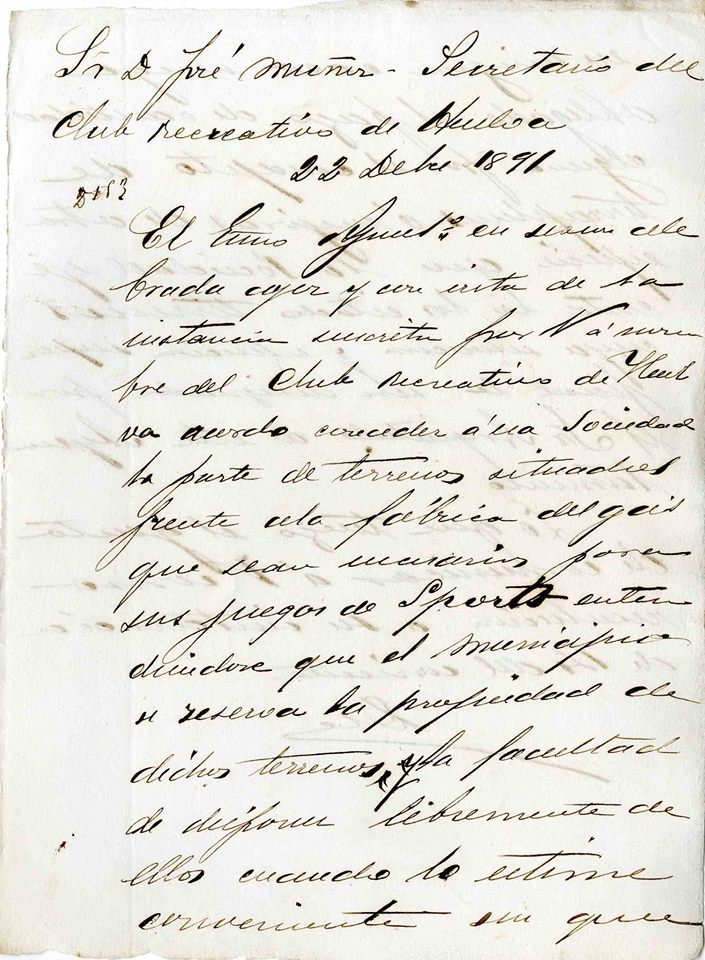 Sr D José Muñoz - Secretario del
Club recreativo de Huelva
22 Dbre 1891
2153
El Exmo Ayunto. en sesion cele
brada ayer y con vista de la
instancia suscrita por V á nom
bre del Club recreativo de Huel
va acordo conceder á esa Sociedad
la parte de terrenos situados
frente ala fábrica del gas
que sean necesarios para
sus juegos de Sports enten
diendose que el municipio
se reserva la propiedad de
dichos terrenos, y la facultad
de disponer libremente de
ellos cuando lo estime
conveniente sin que